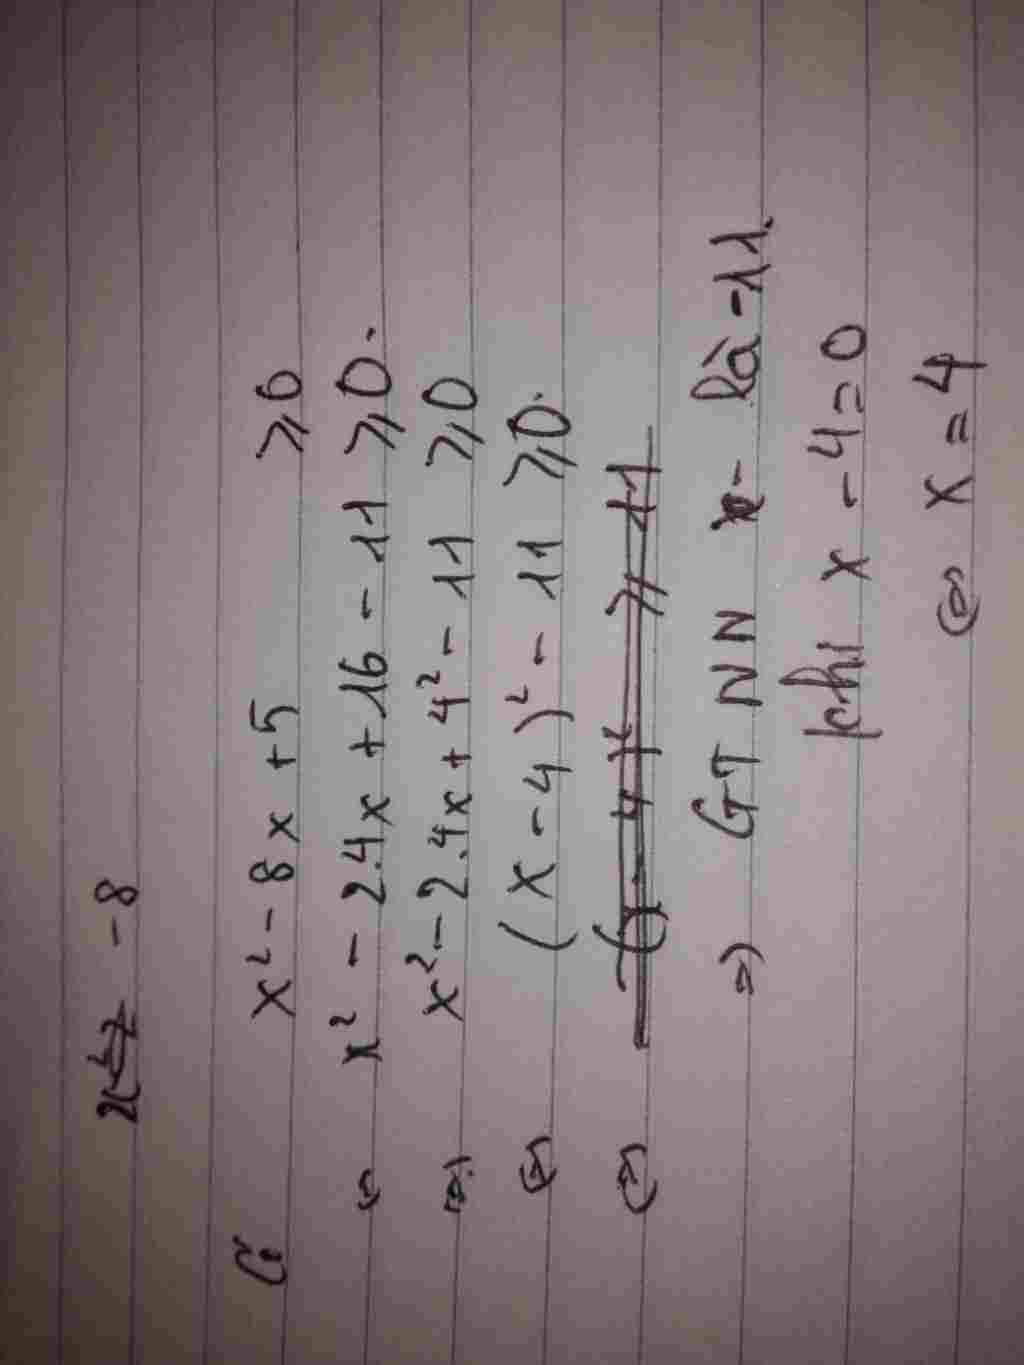 x² - 8
Có x² - 8x + 5 ≥ 0
⇔ x² - 2.4x + 16 - 11 ≥ 0.
⇔ x² - 2.4x + 4² - 11 ≥ 0
⇔ (x - 4)² - 11 ≥ 0.
⇔ (x - 4)² ≥ 11
⇒ GTNN x là -11.
khi x - 4 = 0
⇔ x = 4